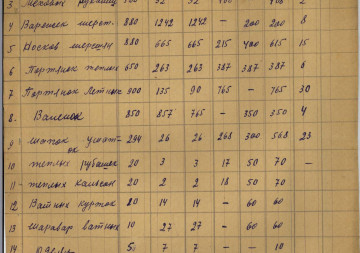 4 Варежек шерст. 880 1242 1242 - 200 200 8
5 Носков шерстян 880 665 665 215 400 615 15
6 Портянок теплых 650 263 263 387 387 6
7 Портянок летных 900 135 90 765 - 765 30
8. Валенок 850 857 765 - 350 350 4
9 шапок ушат- 294 26 26 268 300 568 23
ок
10 теплых рубашек 20 3 3 17 50 70 -
11 теплых кальсон 20 2 2 18 50 70
12 Ватных курток 20 14 14 - 60 60
13 шаравар ватных 10 27 27 - 60 60
14 5 7 7 - - 10